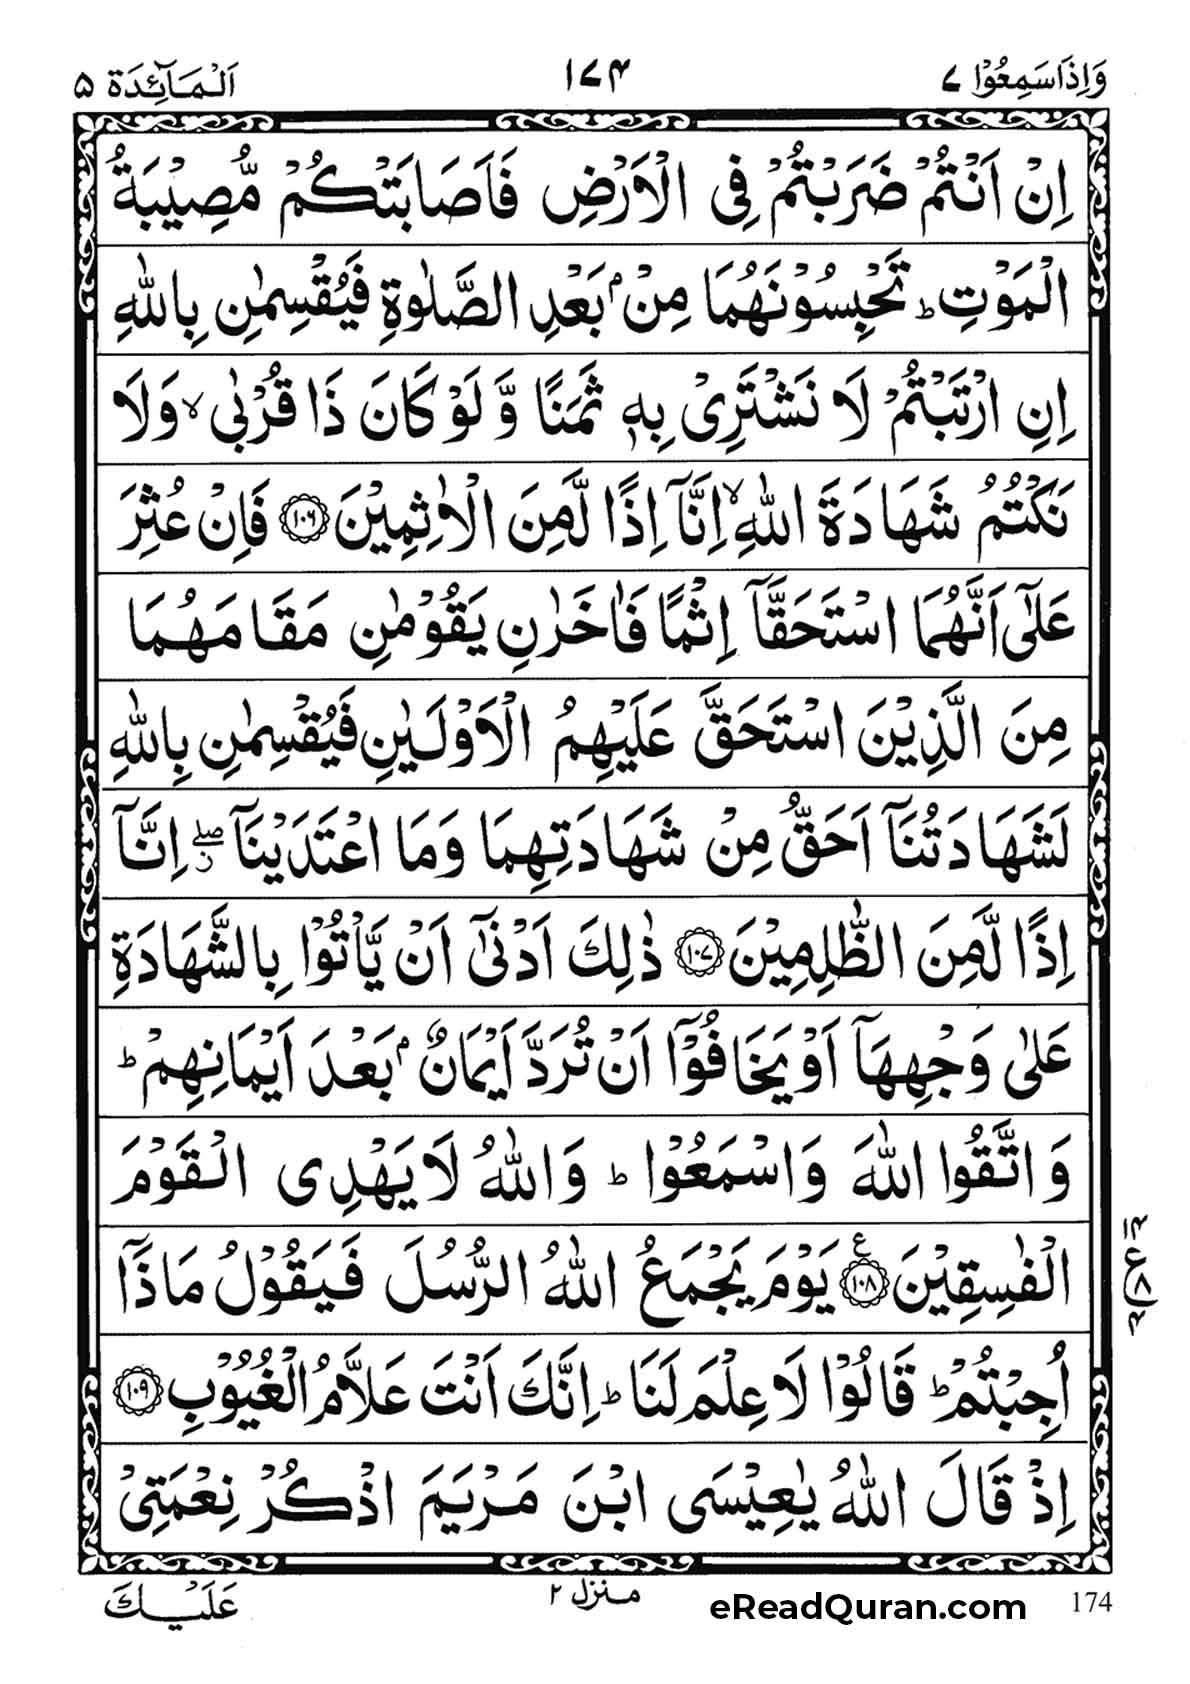 وَاِذَاسَمِعُوْا ۷ ۱۷۴ اَلْمَآئِدَة ۵
اِنْ اَنْتُمْ ضَرَبْتُمْ فِى الْاَرْضِ فَاَصَابَتْكُمْ مُّصِيْبَةُ
الْمَوْتِ ؕ تَحْبِسُوْنَهُمَا مِنْۢ بَعْدِ الصَّلٰوةِ فَيُقْسِمٰنِ بِاللّٰهِ
اِنِ ارْتَبْتُمْ لَا نَشْتَرِىْ بِهٖ ثَمَنًا وَّ لَوْ كَانَ ذَا قُرْبٰى ۙ وَلَا
نَكْتُمُ شَهَادَةَ اللّٰهِ ۙ اِنَّاۤ اِذًا لَّمِنَ الْاٰثِمِيْنَ ۱۰۶ فَاِنْ عُثِرَ
عَلٰٓى اَنَّهُمَا اسْتَحَقَّاۤ اِثْمًا فَاٰخَرٰنِ يَقُوْمٰنِ مَقَامَهُمَا
مِنَ الَّذِيْنَ اسْتَحَقَّ عَلَيْهِمُ الْاَوْلَيٰنِ فَيُقْسِمٰنِ بِاللّٰهِ
لَشَهَادَتُنَاۤ اَحَقُّ مِنْ شَهَادَتِهِمَا وَمَا اعْتَدَيْنَاۤ ۖ اِنَّاۤ
اِذًا لَّمِنَ الظّٰلِمِيْنَ ۱۰۷ ذٰلِكَ اَدْنٰٓى اَنْ يَّاْتُوْا بِالشَّهَادَةِ
عَلٰى وَجْهِهَاۤ اَوْ يَخَافُوْۤا اَنْ تُرَدَّ اَيْمَانٌۢ بَعْدَ اَيْمَانِهِمْ ؕ
وَاتَّقُوا اللّٰهَ وَاسْمَعُوْا ؕ وَاللّٰهُ لَا يَهْدِى الْقَوْمَ
الْفٰسِقِيْنَ ۱۰۸ ع يَوْمَ يَجْمَعُ اللّٰهُ الرُّسُلَ فَيَقُوْلُ مَاذَاۤ
اُجِبْتُمْ ؕ قَالُوْا لَا عِلْمَ لَنَا ؕ اِنَّكَ اَنْتَ عَلَّامُ الْغُيُوْبِ ۱۰۹
اِذْ قَالَ اللّٰهُ يٰعِيْسَى ابْنَ مَرْيَمَ اذْكُرْ نِعْمَتِىْ
عَلَيْكَ
منزل ۲
eReadQuran.com
174